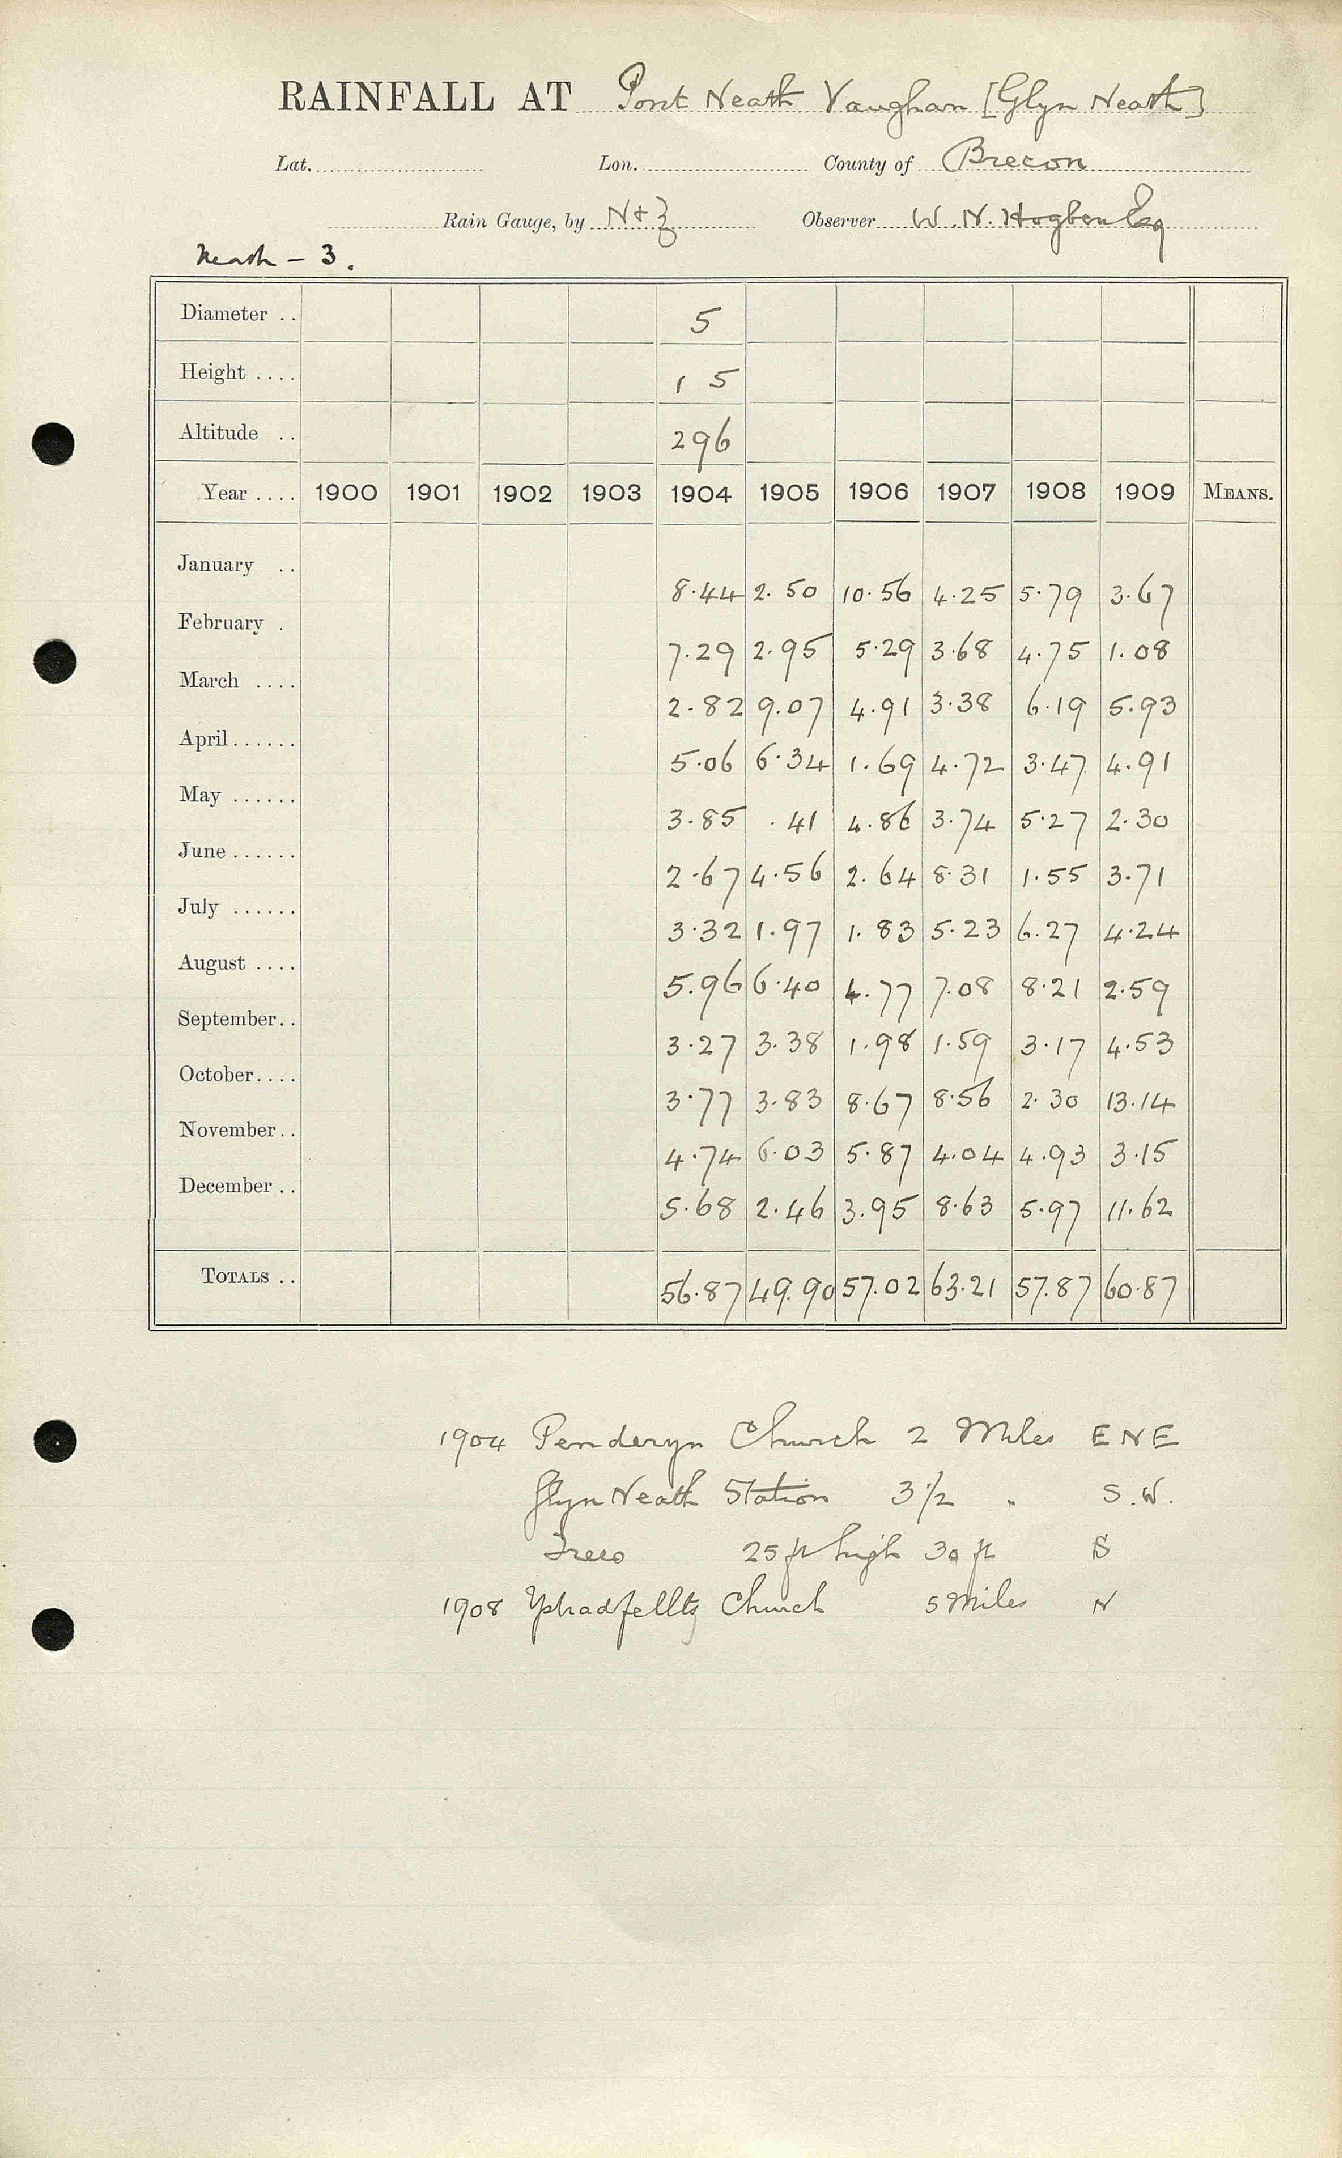 RAINFALL AT Pont Neath Vaughan [Glyn Neath]
Lat. Lon. County of Brecon
Rain Gauge, by N+Z Observer W. N. Hogben Esq
Neath - 3.
Diameter .. 5
Height .... 1 5
Altitude .. 296
Year .... 1900 1901 1902 1903 1904 1905 1906 1907 1908 1909 MEANS.
January .. 8.44 2.50 10.56 4.25 5.79 3.67
February . 7.29 2.95 5.29 3.68 4.75 1.08
March .... 2.82 9.07 4.91 3.38 6.19 5.93
April...... 5.06 6.34 1.69 4.72 3.47 4.91
May ...... 3.85 .41 4.86 3.74 5.27 2.30
June...... 2.67 4.56 2.64 8.31 1.55 3.71
July ...... 3.32 1.97 1.83 5.23 6.27 4.24
August .... 5.96 6.40 4.77 7.08 8.21 2.59
September.. 3.27 3.38 1.98 1.59 3.17 4.53
October.... 3.77 3.83 8.67 8.56 2.30 13.14
November.. 4.74 6.03 5.87 4.04 4.93 3.15
December .. 5.68 2.46 3.95 8.63 5.97 11.62
TOTALS .. 56.87 49.90 57.02 63.21 57.87 60.87
1904 Penderyn Church 2 Miles ENE
Glyn Neath Station 3 1/2 " S.W.
Trees 25 ft high 30 ft S
1908 Ystradfellty Church 5 Miles N